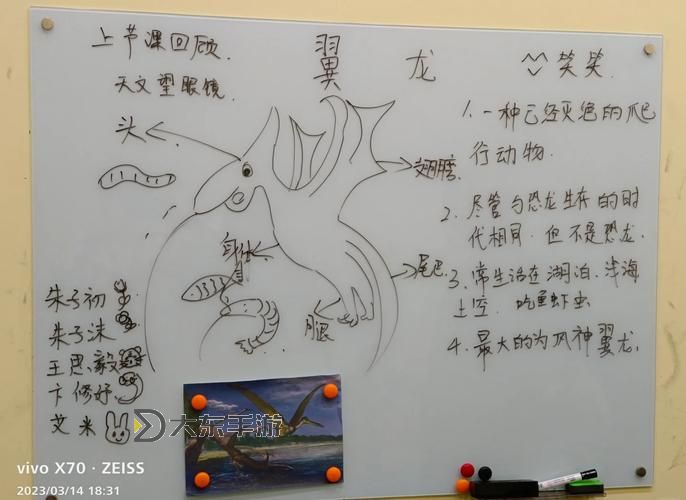 上节课回顾.
天文望眼镜.
翼 龙
笑笑.
头
翅膀.
身体
尾巴.
腿
1. 一种已经灭绝的爬
行动物.
2. 尽管与恐龙生存的时
代相同. 但不是恐龙.
3. 常生活在湖泊、浅海
上空. 吃鱼虾虫
4. 最大的为风神翼龙.
朱子初
朱子沫
王思毅
卞修好
艾米
大东手游
vivo X70 · ZEISS
2023/03/14 18:31